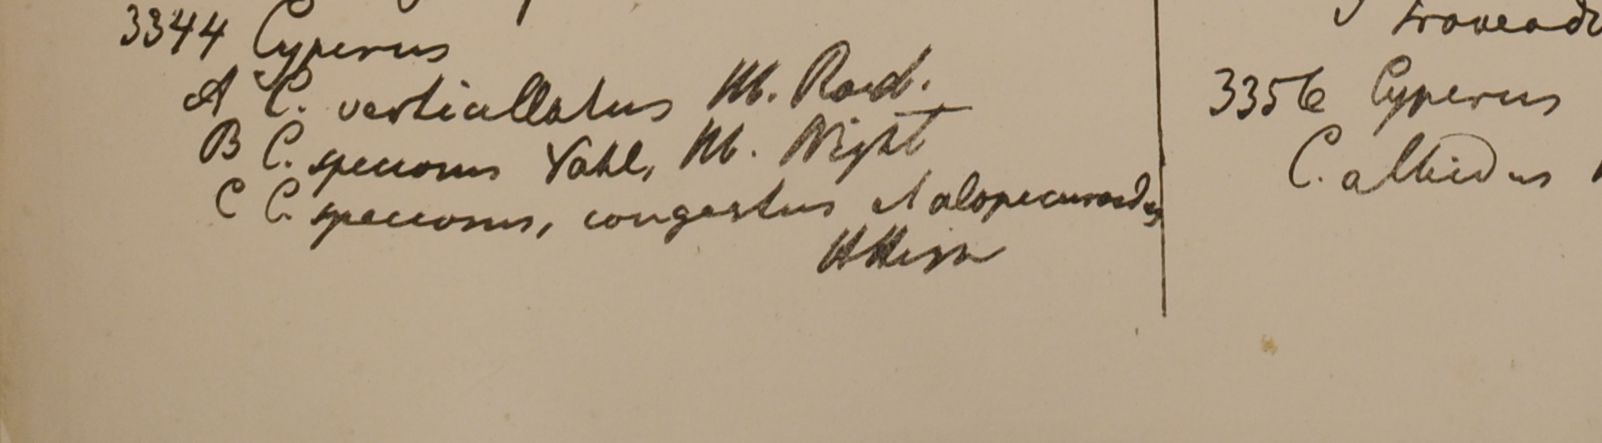 3344 Cyperus
A C. verticillatus Hb. Roxb.
B C. speciosus Vahl, Hb. Wight
C C. speciosus, congestus et alopecuroides
3356 Cyperus
C. albidus